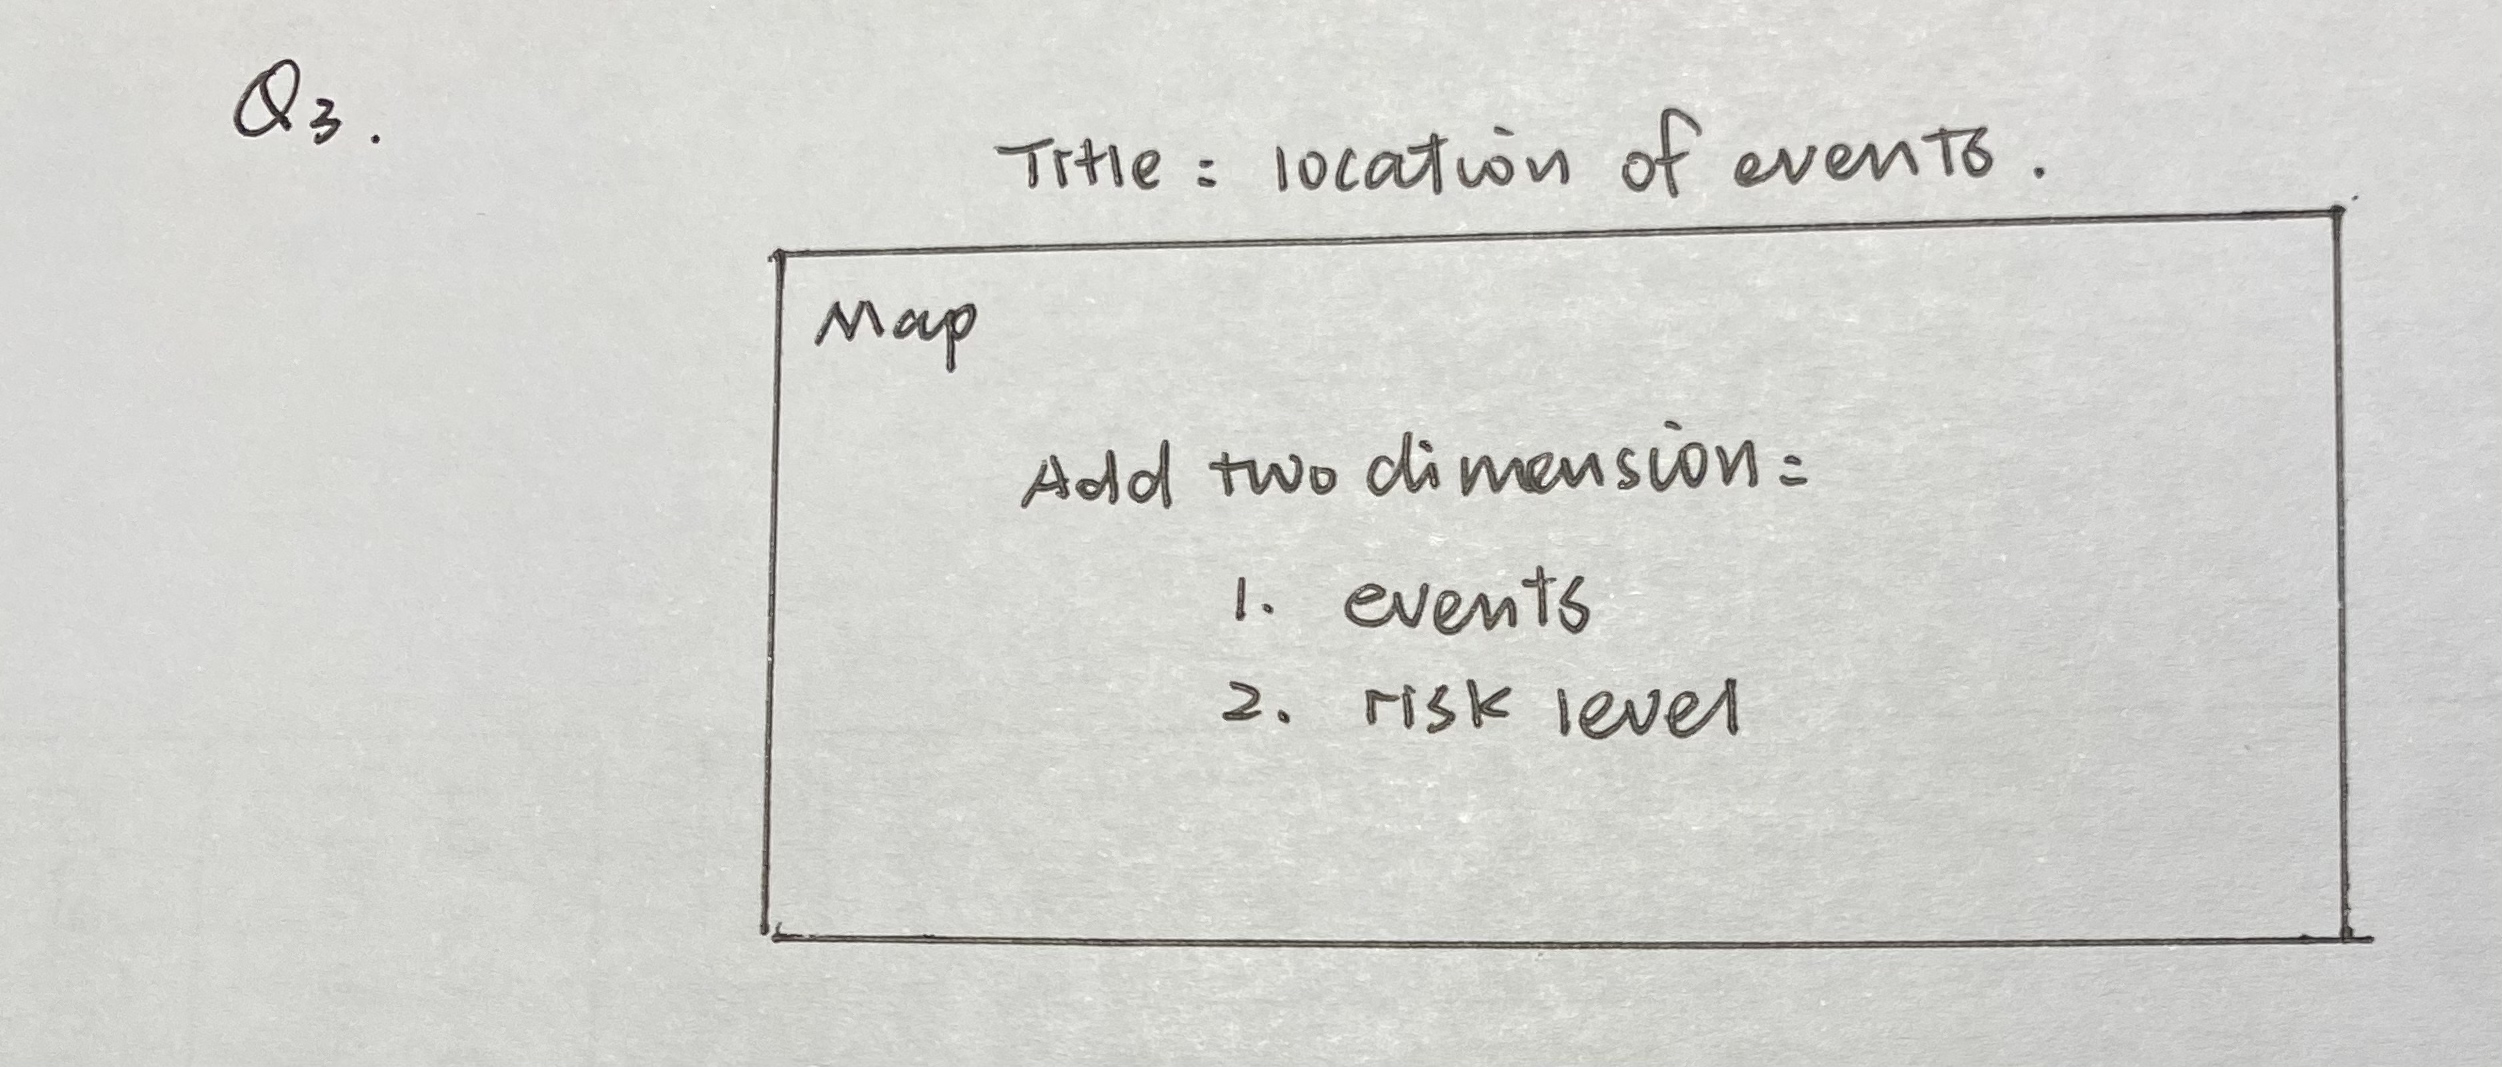 Q3.
Title: location of events.
Map
Add two dimension:
1. events
2. risk level